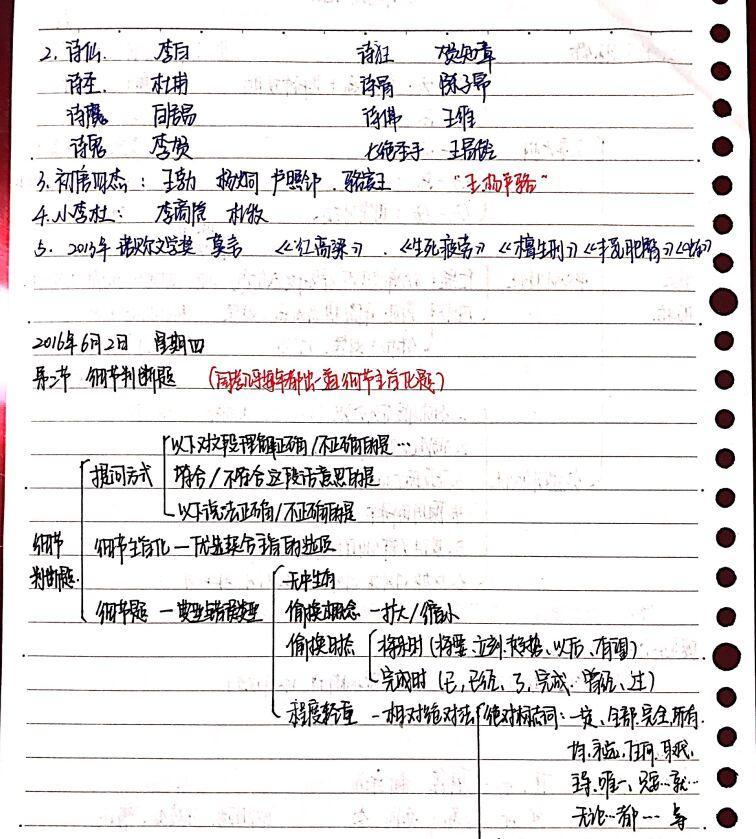 2. 诗仙 李白 诗狂 贺知章
诗圣 杜甫 诗骨 陈子昂
诗魔 白居易 诗佛 王维
诗鬼 李贺 七绝圣手 王昌龄
3. 初唐四杰: 王勃 杨炯 卢照邻 骆宾王 "王杨卢骆"
4. 小李杜: 李商隐 杜牧
5. 2013年 诺贝尔文学奖 莫言 《红高粱》.《生死疲劳》《檀生刑》《丰乳肥臀》《蛙》
2016年6月2日 星期四
第二节 细节判断题 (国考
都出一道细节主旨化题)
以下对文段理解正确/不正确的是…
提问方式 符合/不符合这段话意思的是
以下说法正确/不正确的是
细节判断题
细节主旨化—优选契合主旨的选项
无中生有
细节题—典型错误类型 偷换概念—扩大/缩小
偷换时态 将来时(将要、立刻、趋势、以后、有望)
完成时(已、已经、了、完成、曾经、过)
程度轻重—相对绝对法 绝对标志词:一定、全部、完全、所有、
均、永远、任何、
主导、唯一、只要…就…
无论…都… 等